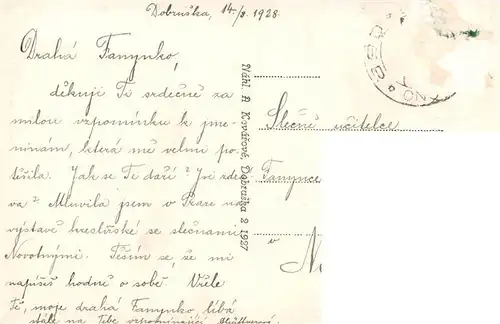 Dobruška, 14./8. 1928.
Drahá Fanynko,
děkuji Ti srdečně za
milou vzpomínku k jme-
ninám, která mě velmi po-
těšila. Jak se Ti daří? Jsi zdrá-
va? Mluvila jsem v Praze na
výstavě hreslířské se slečnami
Novotnými. Těším se, že mi
napíšeš hodně o sobě. Vřele
Tě, moje drahá Fanynko, líbá
stále na Tebe vzpomínající
Nákl. A Kovářové, Dobruška 2 1927
Slečně učitelce
Fanynce
v